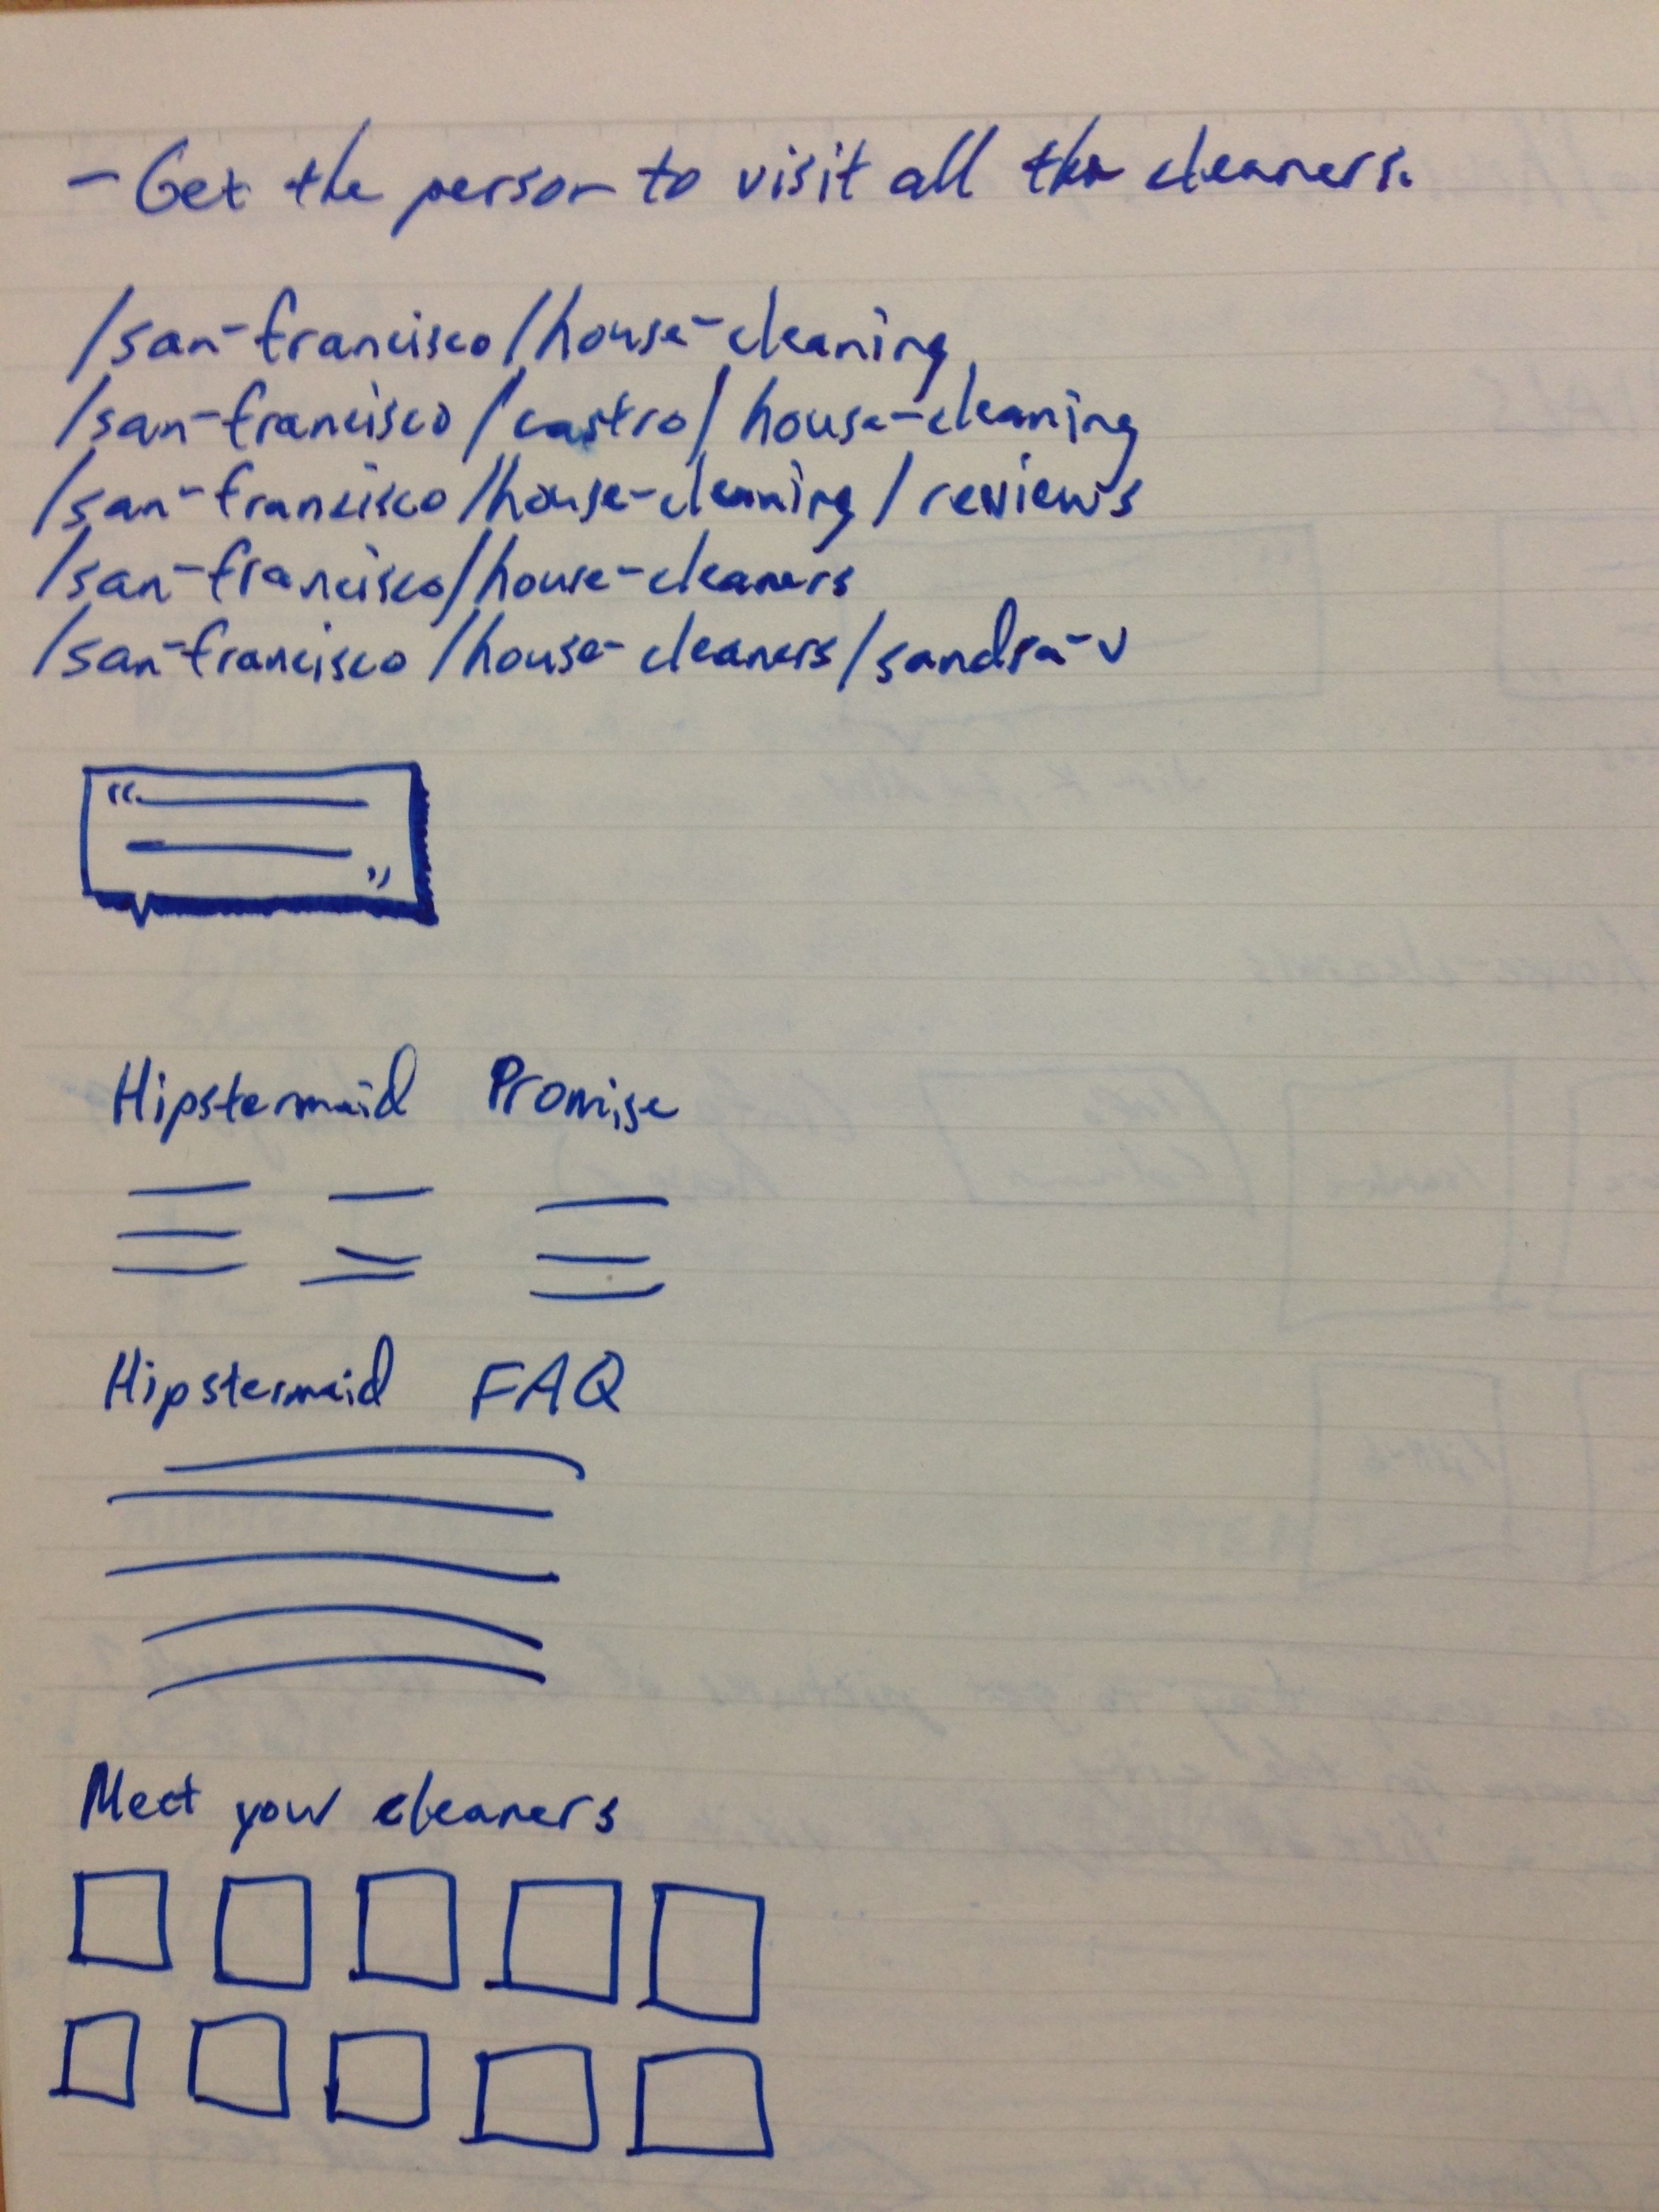 - Get the person to visit all the cleaners.
/san-francisco/house-cleaning
/san-francisco/castro/house-cleaning
/san-francisco/house-cleaning/reviews
/san-francisco/house-cleaners
/san-francisco/house-cleaners/sandra-v
“ ”
Hipstermaid Promise
Hipstermaid FAQ
Meet your cleaners